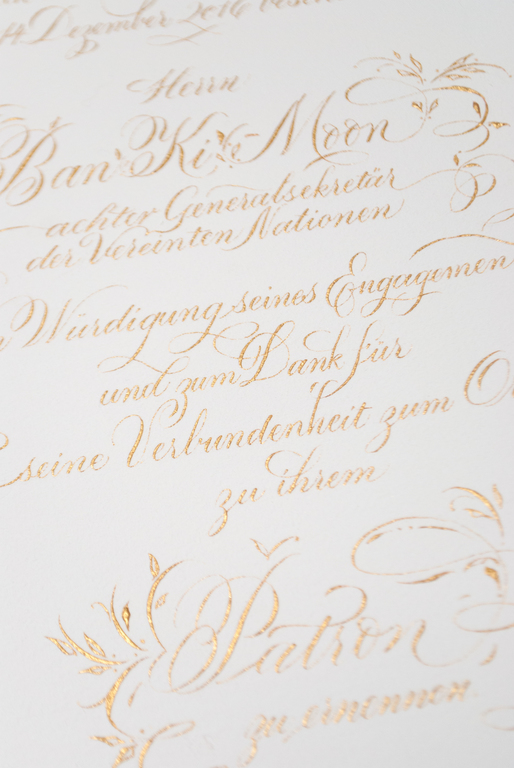 14 Dezember 2016
Herrn
Ban Ki-Moon
achter Generalsekretär
der Vereinten Nationen
n Würdigung seines Engagemen
und zum Dank für
seine Verbundenheit zum O
zu ihrem
Patron
zu ernennen